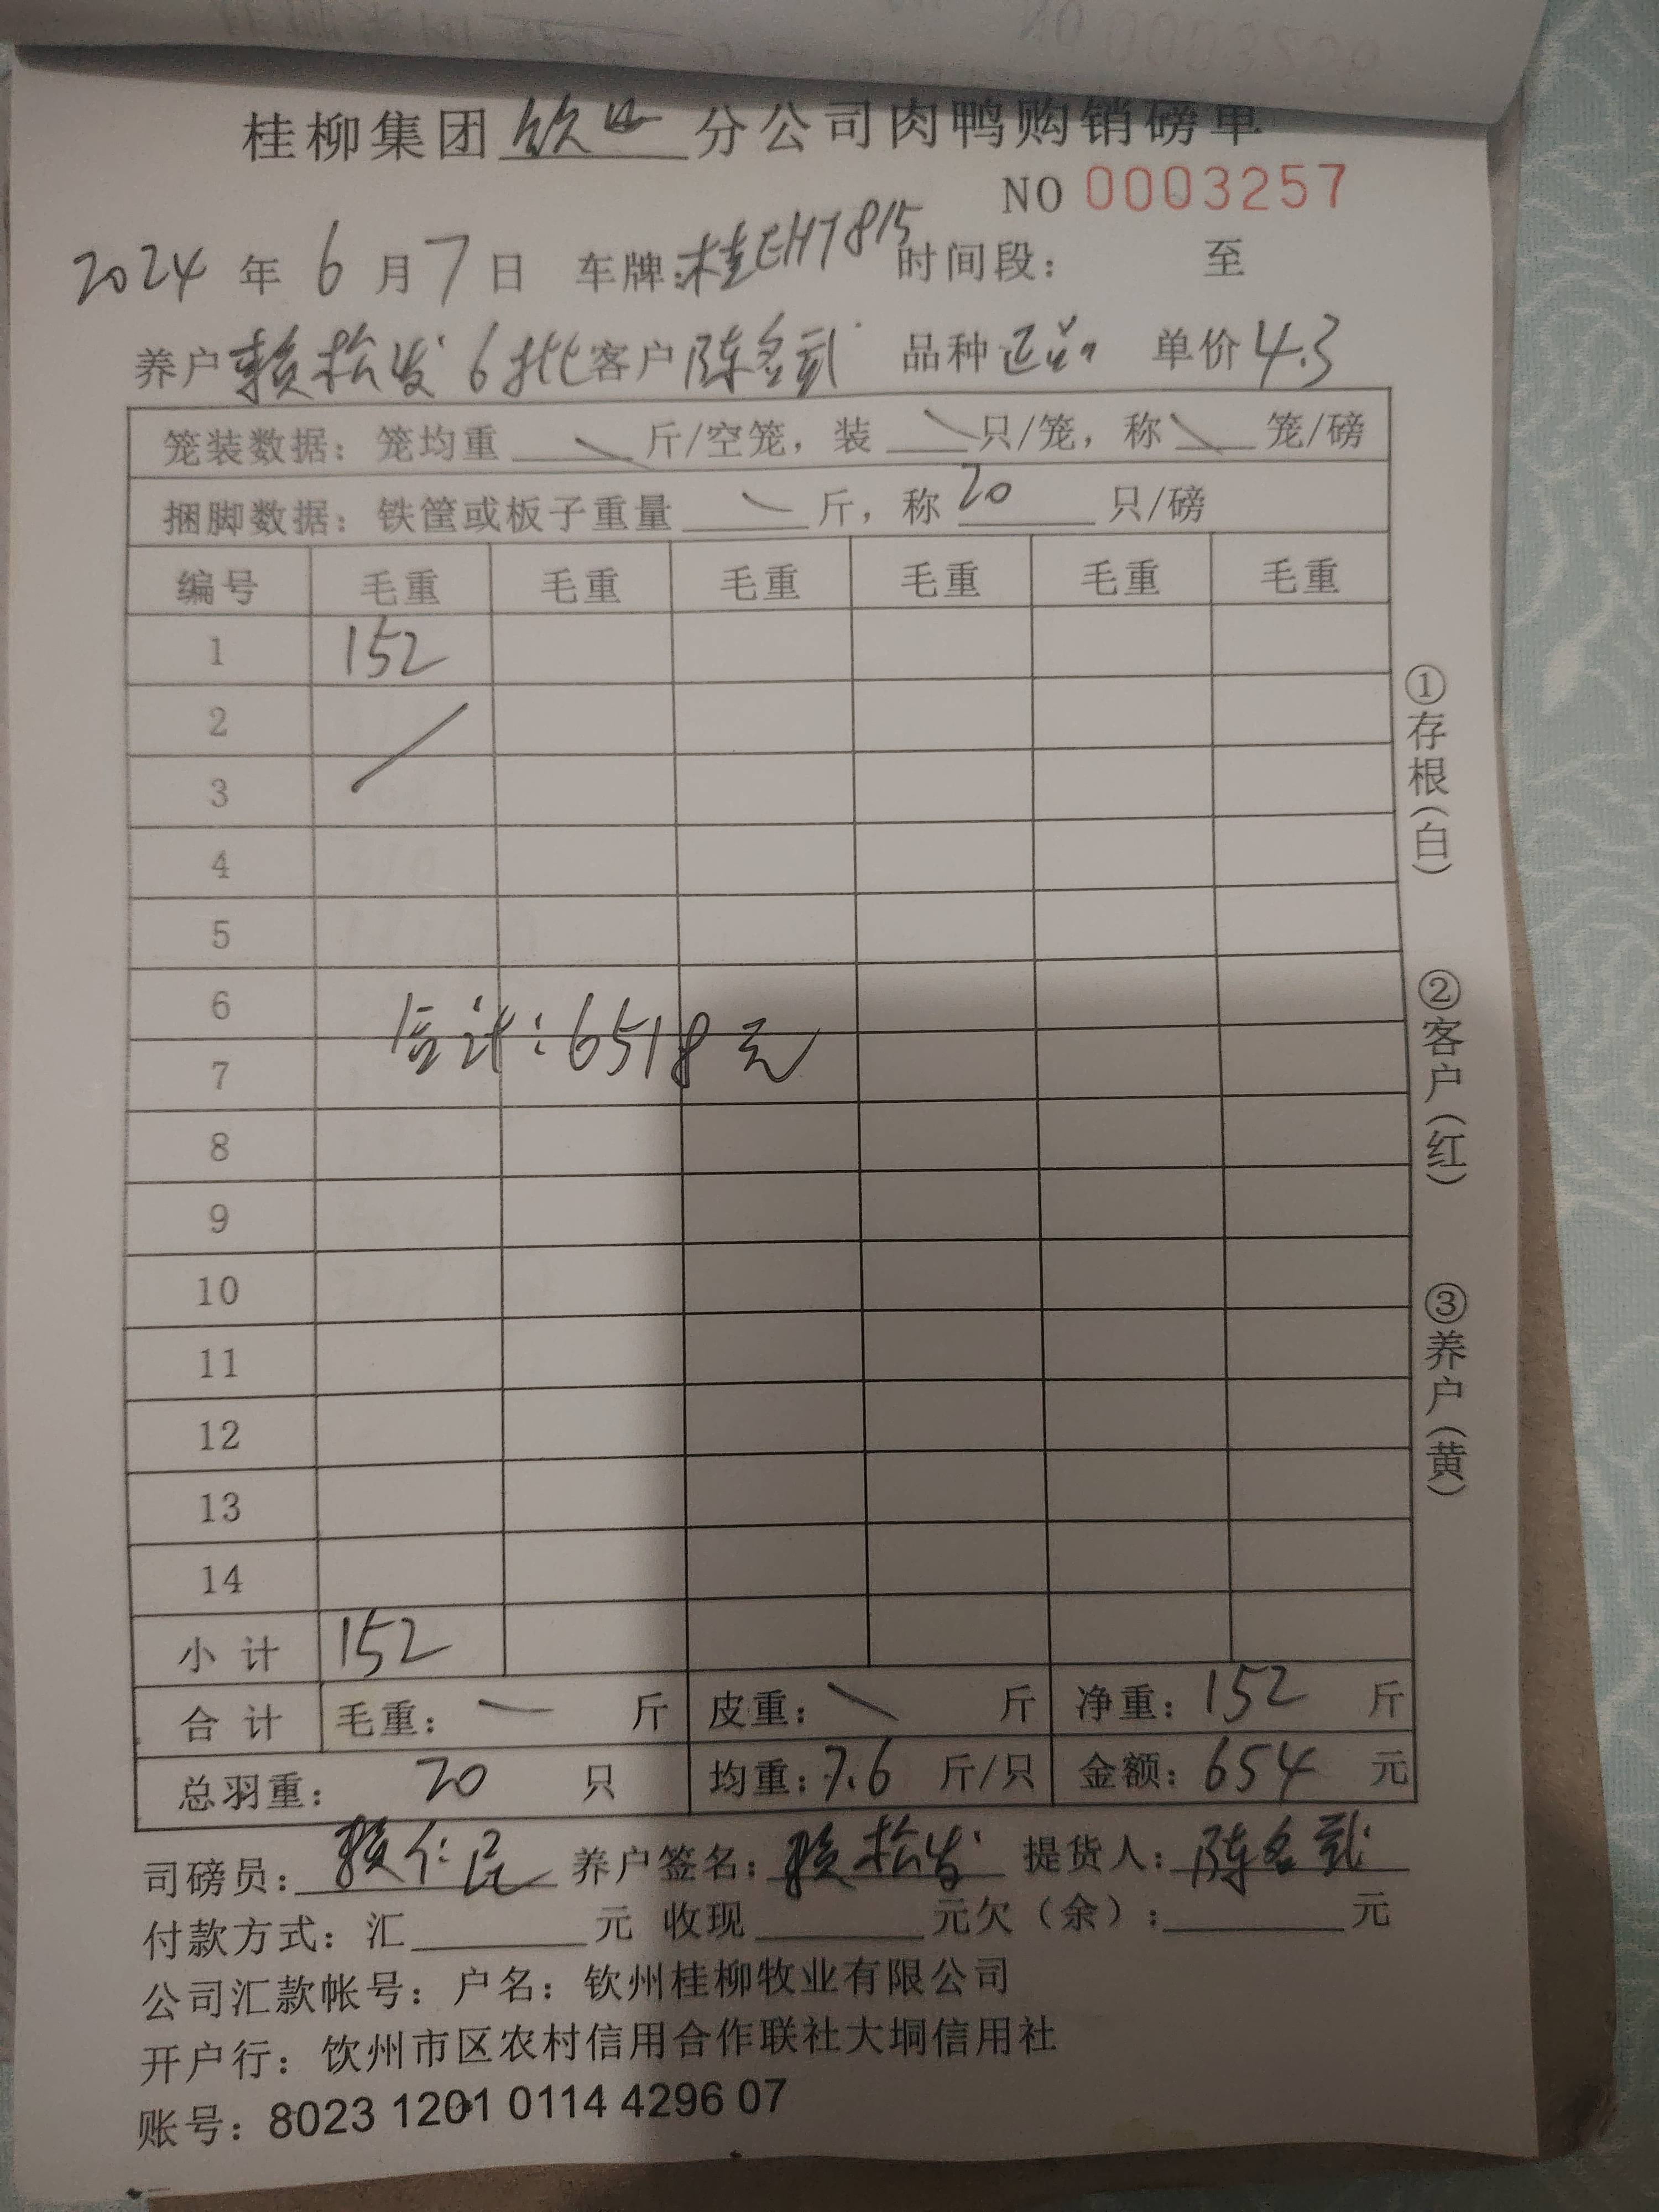 桂柳集团 钦州 分公司肉鸭购销磅单
NO 0003257
2024 年 6 月 7 日 车牌:桂EH7815 时间段: 至
养户 赖松发 6批 客户 陈名武 品种 单价 4.3
笼装数据:笼均重 斤/空笼,装 只/笼,称 笼/磅
捆脚数据:铁筐或板子重量 斤,称 20 只/磅
编号 毛重 毛重 毛重 毛重 毛重 毛重
1 152
2
3
4
5
6
合计:6518元
7
8
9
10
11
12
13
14
小计 152
合计 毛重: 斤 皮重: 斤 净重:152 斤
总羽重: 20 只 均重:7.6 斤/只 金额:654 元
司磅员:赖仁民 养户签名:赖松发 提货人:陈名武
付款方式:汇 元 收现 元欠(余): 元
公司汇款帐号:户名:钦州桂柳牧业有限公司
开户行:饮州市区农村信用合作联社大垌信用社
账号:8023 1201 0114 4296 07
①存根(白)
②客户(红)
③养户(黄)